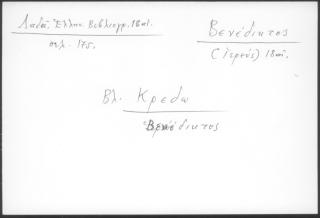 Λαδᾶ, Ἑλλην. Βιβλιογρ. 18 αἰ.
σελ. 175.
Βενέδικτος
(Ἱερεύς) 18 αἰ.
Βλ. Κρεδω
Βενέδικτος